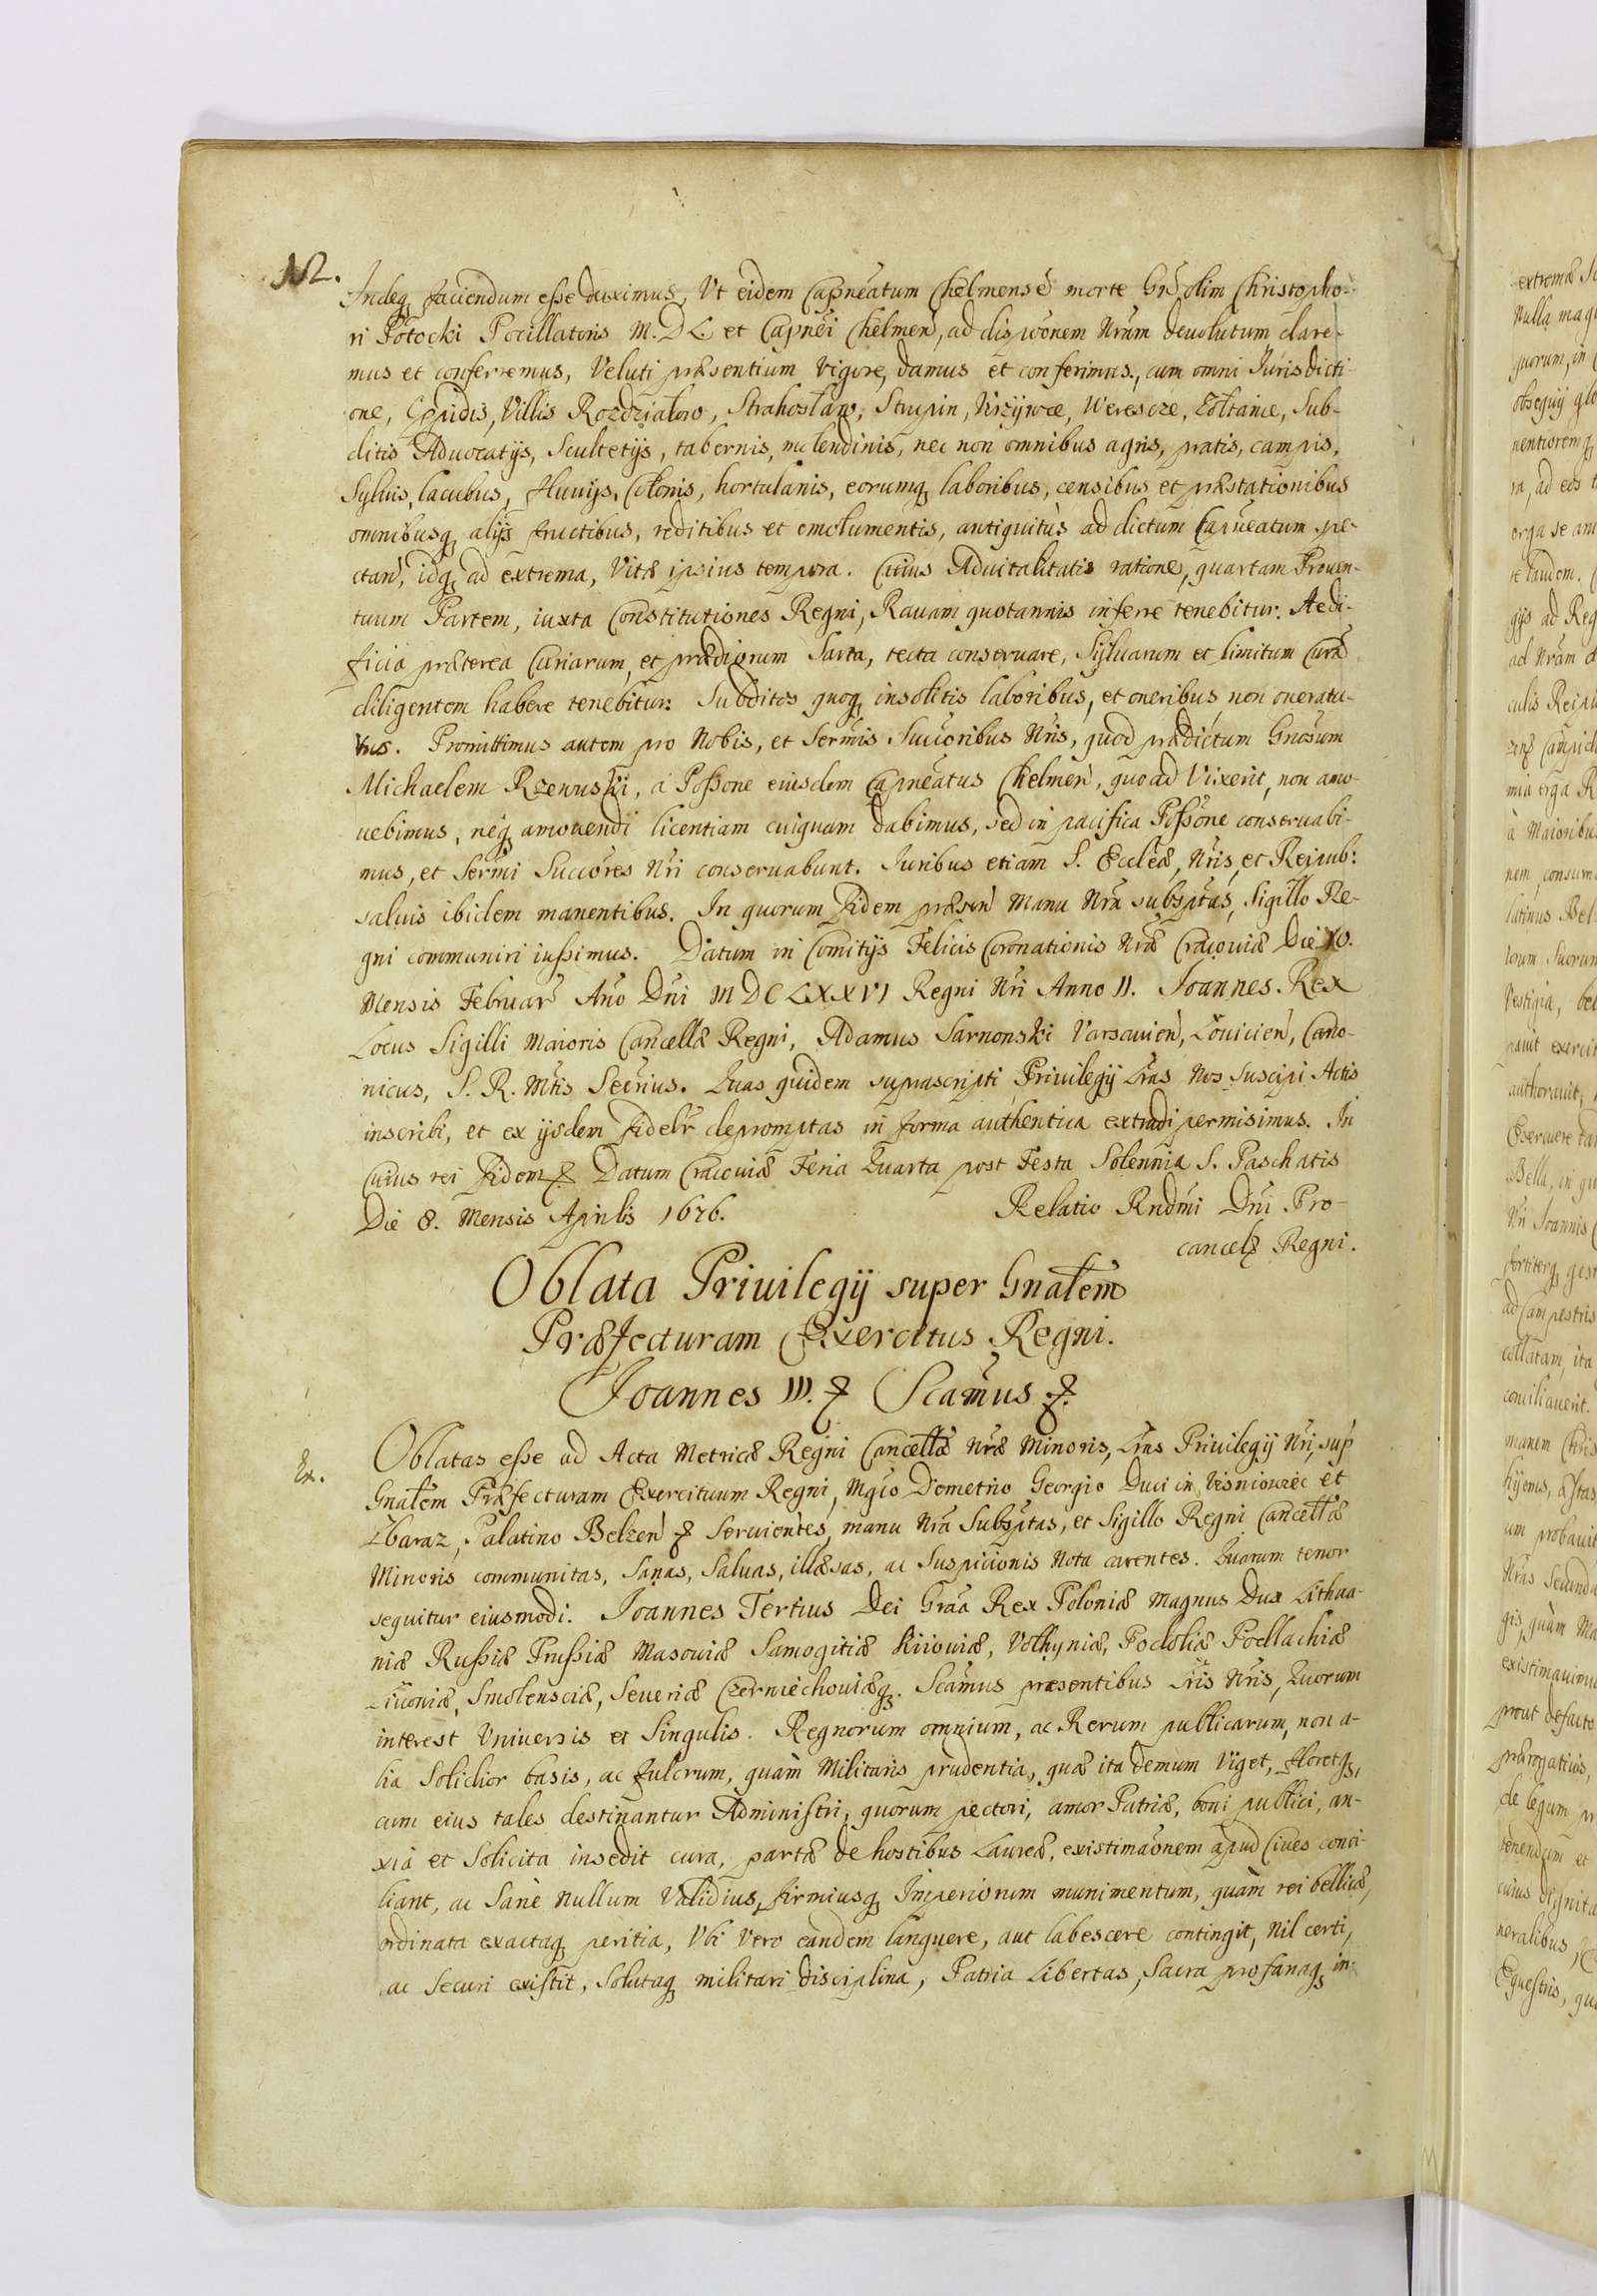 Indeq faciendum esse duximus, Vt eidem Capneatum Chelmensē morte Gñ olim Christopho-
ri Potocki Pocillatoris M.D.L. et Capnei Chelmeñ, ad dispõnem Nrām deuolutum dare-
mus et conferremus, Veluti præsentium vigore, damus et conferimus, cum omni Jurisdicti-
one, Oppidis, Villis Rozdziałow, Strahosław, Strupin, Krzywce, Werescze, Zołtance, Sub-
ditis Aduocatijs, Scultetijs, tabernis, molendinis, nec non omnibus agris, pratis, campis,
Syluis, lacubus, fluuijs, Colonis, hortulanis, eorumq laboribus, censibus et præstationibus
omnibusq alijs fructibus, reditibus et emolumentis, antiquitùs ad dictum Capneatum spe-
ctañ, idq ad extrema, Vitæ ipsius tempora. Cuius Aduitalitatis ratione, quartam Prouen-
tuum Partem, iuxta Constitutiones Regni, Rauam quotannis inferre tenebitur. Aedi-
ficia præterea Curiarum, et prædiorum Sarta, tecta conseruare, Syluarum et limitum Curā
diligentem habere tenebitur. Subditos quoq insolitis laboribus, et oneribus, non oneratu-
rus. Promittimus autem pro Nobis, et Sermis Succoribus Nris, quod prædictum Gnosum
Michaelem Rzewuski, a Possone eiusdem Capneatus Chelmeñ, quoad Vixerit, non amo-
uebimus, neq amouendi licentiam cuiquam dabimus, sed in pacifica Possone conseruabi-
mus, et Sermi Succores Nri conseruabunt. Juribus etiam S. Eccleæ, Nris, et Reipub:
saluis ibidem manentibus. In quorum fidem præseñ Manu Nrā subsptas, Sigillo Re-
gni communiri iussimus. Datum in Comitijs Felicis Coronationis Nræ Cracouiæ Die XV.
Mensis Februar Año Dñi MDCLXXVI Regni Nri Anno II. Joannes Rex
Locus Sigilli Maioris Cancellæ Regni, Adamus Sarnonski Varsauieñ, Louicieñ, Cano-
nicus, S. R. Mtis Secrius. Quas quidem suprascripti Priuilegij Lras Nos Suscipi Actis
inscribi, et ex ijsdem fidelr depromptas in forma authentica extradi permisimus. In
Cuius rei fidem ꝛ Datum Cracouiæ Feria Quarta post Festa Solennia S. Paschatis
Die 8. Mensis Aprilis 1676. Relatio Rndmi Dñi Pro-
cancelꝛ Regni.
Oblata Priuilegij super Gnalem
Præfecturam Exercitus Regni.
Joannes III. ꝛ Scamus ꝛ.
Ex. Oblatas esse ad Acta Metricæ Regni Cancellæ Nræ Minoris, Lras Priuilegij Nri, sup
Gnalem Præfecturam Exercituum Regni, Mgco Demetrio Georgio Duci in Visniowiec et
Zbaraz, Palatino Belzeñ ꝛ Seruientes, manu Nrā Subsptas, et Sigillo Regni Cancellæ
Minoris communitas, Sanas, Saluas, illæsas, ac Suspicionis Nota carentes. Quarum tenor
sequitur eiusmodi. Joannes Tertius Dei Graa Rex Poloniæ Magnus Dux Lithua-
niæ Russiæ Prussiæ Masouiæ Samogitiæ Kiiouiæ, Volhyniæ, Podoliæ Podlachiæ
Liuoniæ, Smolensciæ, Seueriæ Czerniechouiæq. Scamus præsentibus Lris Nris, Quorum
interest Vniuersis et Singulis. Regnorum omnium, ac Rerum publicarum, non a-
lia Solidior basis, ac fulcrum, quàm Militaris prudentia, quæ ita demum Viget, floretq,
cum eius tales destinantur Administri, quorum pectori, amor Patriæ, boni publici, an-
xia et Solicita insedit cura, partæ de hostibus Laureæ, existimaonem apud Ciues conci-
liant, ac Sanè nullum Validius, firmiusq Imperiorum munimentum, quàm rei bellicæ,
ordinata exactaq peritia, Vbi Vero eandem languere, aut labescere contingit, Nil certi,
ac Securi existit, Solutaq militari disciplina, Patria Libertas, Sacra profanaq in-